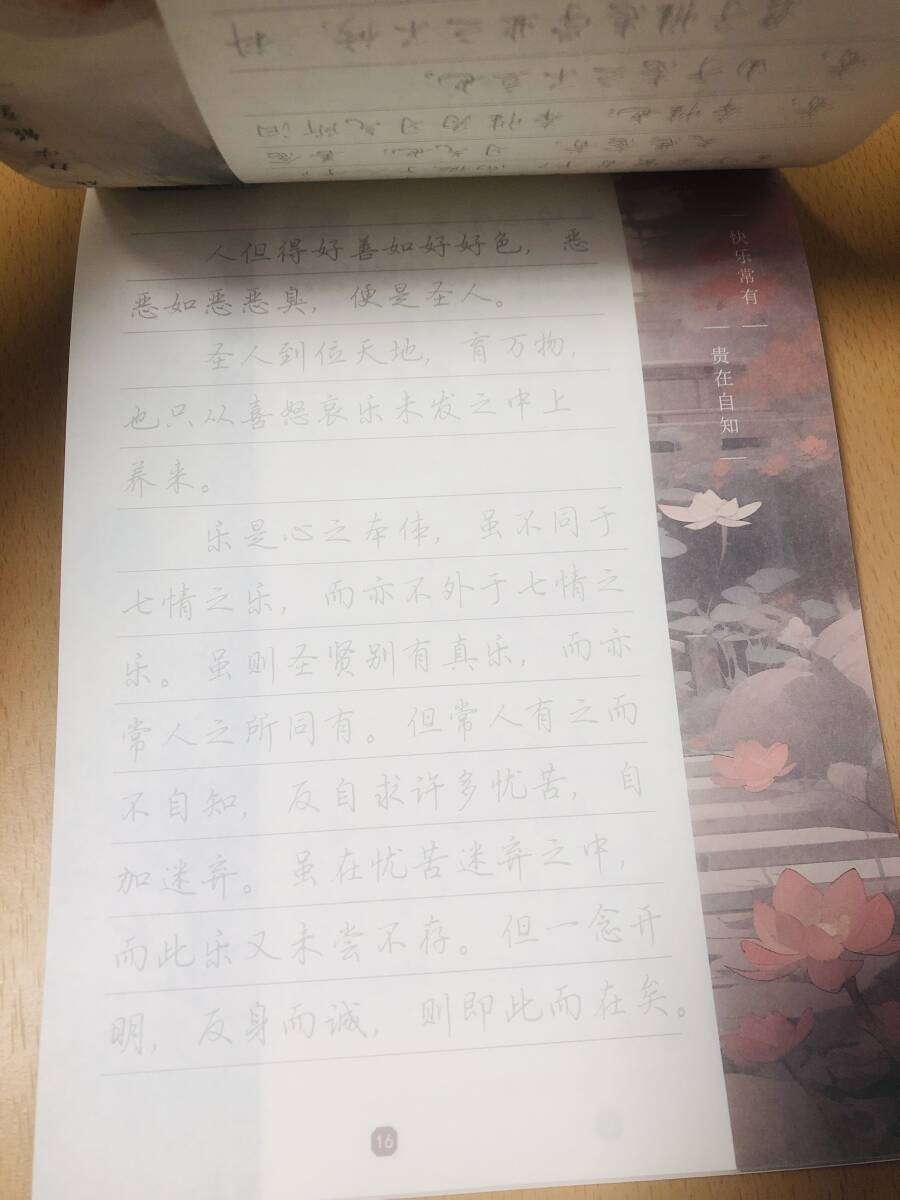 人但得好善如好好色，恶
恶如恶恶臭，便是圣人。
圣人到位天地，育万物，
也只从喜怒哀乐未发之中上
养来。
乐是心之本体，虽不同于
七情之乐，而亦不外于七情之
乐。虽则圣贤别有真乐，而亦
常人之所同有。但常人有之而
不自知，反自求许多忧苦，自
加迷弃。虽在忧苦迷弃之中，
而此乐又未尝不存。但一念开
明，反身而诚，则即此而在矣。
快乐常有
贵在自知
16